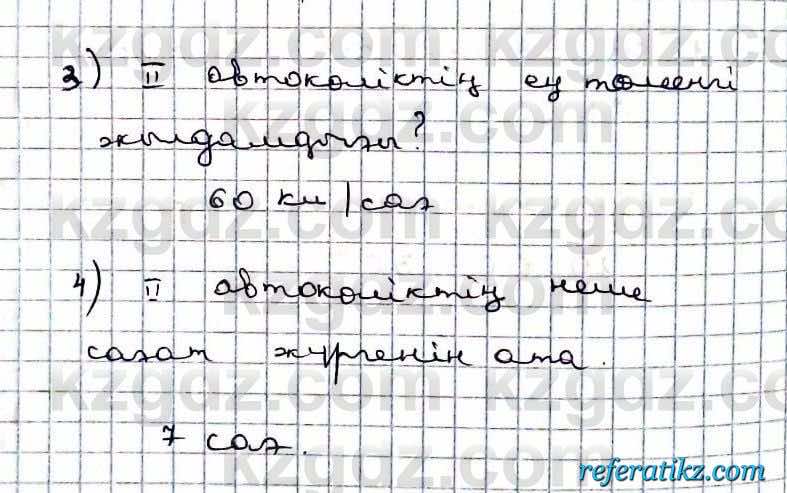 3) II автокөліктің ең төменгі
жылдамдығы?
60 км/сағ
4) II автокөліктің неше
сағат жүргенін ата.
7 сағ.
kzgdz.com
referatikz.com